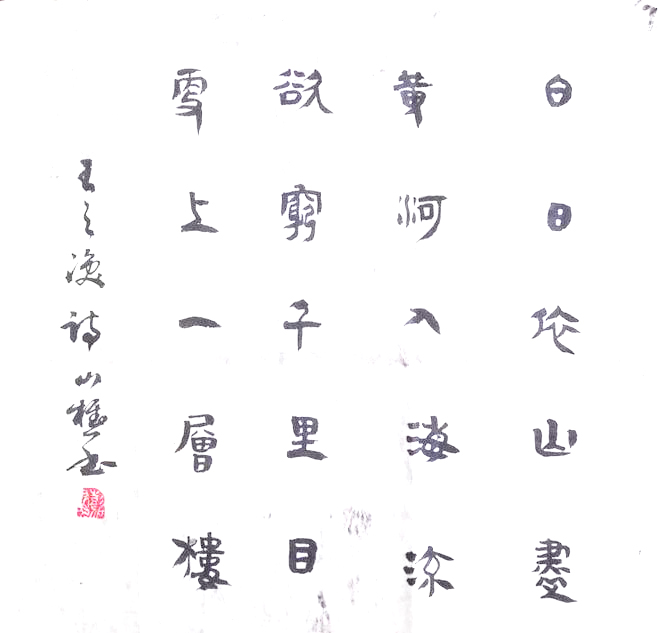 白日依山盡
黄河入海流
欲窮千里目
更上一層樓
王之渙詩山樵書